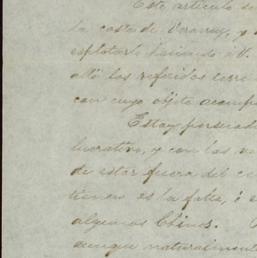 Este articulo se
la costa de Veraruz, y
esplotarl
allá los referidos terre
con cuyo objeto acompa
Estoy persuadido
lucrativo, y con las
de estar fuera del
tienen es la falta, é
algunos Chinos.
aunque naturalment